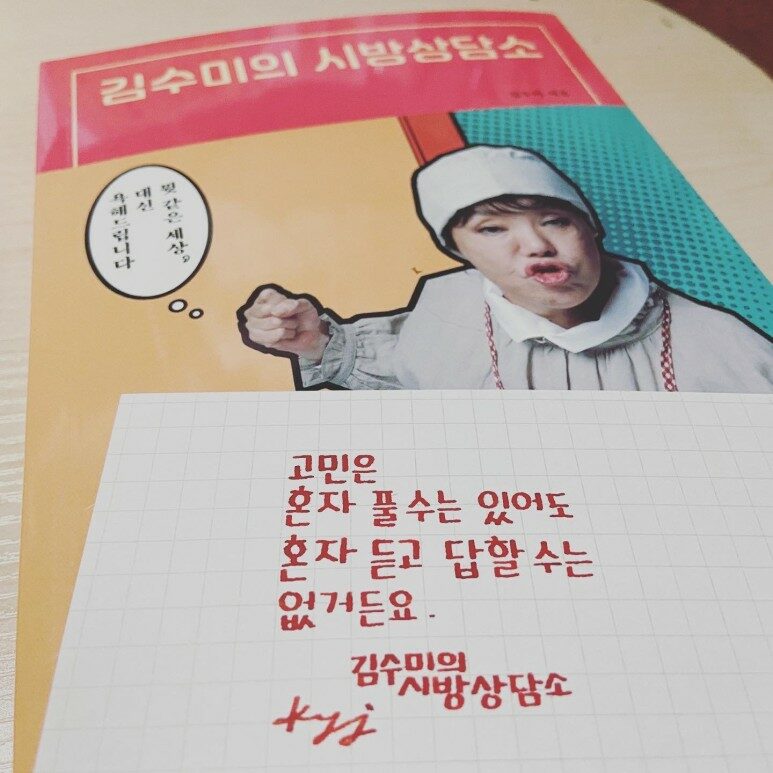 김수미의 시방상담소
뭣 같은 세상,
대신
욕해드립니다
고민은
혼자 풀 수는 있어도
혼자 듣고 답할 수는
없거든요.
김수미의
시방상담소
kyj